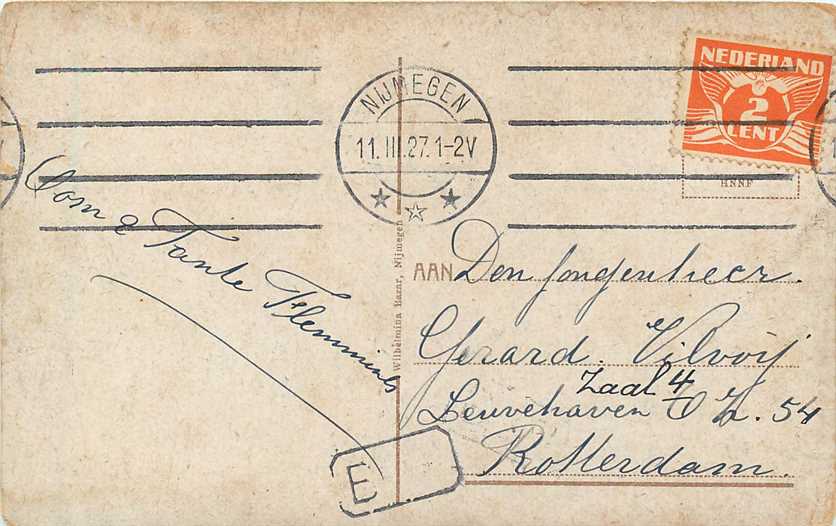 NIJMEGEN
11.III.27.1-2V
NEDERLAND
2
CENT
HNNF
Oom & Tante Flemmincs
Wilhelmina Bazar, Nijmegen
AAN Den Jongenheer.
Gerard. Vilvoÿ
Zaal 4
Leuvehaven O Z. 54
Rotterdam.
E